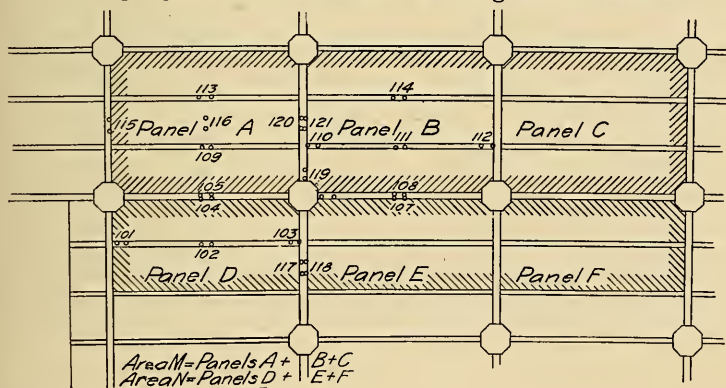 113 114
115 Panel 116 A 120 121 Panel B Panel C
110 111 112
109
119
105 108
104 107
101 103
102
117 118
Panel D Panel E Panel F
Area M = Panels A + B + C
Area N = Panels D + E + F